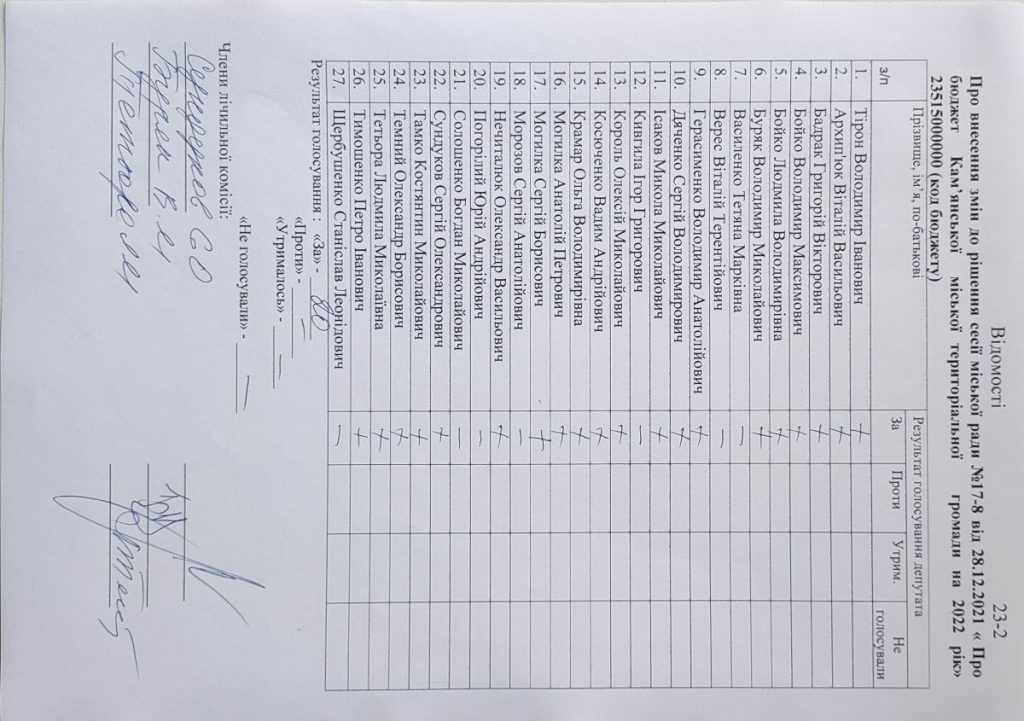 Відомості 23-2
Про внесення змін до рішення сесії міської ради №17-8 від 28.12.2021 « Про
бюджет Кам’янської міської територіальної громади на 2022 рік»
23515000000 (код бюджету)
з/п Прізвище, ім’я, по-батькові Результат голосування депутата
За Проти Утрим. Не голосували
1. Тірон Володимир Іванович +
2. Архип'юк Віталій Васильович +
3. Бадрак Григорій Вікторович +
4. Бойко Володимир Максимович +
5. Бойко Людмила Володимирівна +
6. Буряк Володимир Миколайович +
7. Василенко Тетяна Марківна —
8. Верес Віталій Терентійович —
9. Герасименко Володимир Анатолійович +
10. Дяченко Сергій Володимирович +
11. Ісаков Микола Миколайович +
12. Кивгила Ігор Григорович —
13. Король Олексій Миколайович +
14. Косюченко Вадим Андрійович +
15. Крамар Ольга Володимирівна +
16. Могилка Анатолій Петрович +
17. Могилка Сергій Борисович +
18. Морозов Сергій Анатолійович —
19. Нечиталюк Олександр Васильович +
20. Погорілий Юрій Андрійович —
21. Солошенко Богдан Миколайович —
22. Сундуков Сергій Олександрович +
23. Тамко Костянтин Миколайович +
24. Темний Олександр Борисович +
25. Тетьора Людмила Миколаївна +
26. Тимошенко Петро Іванович +
27. Щербушенко Станіслав Леонідович —
Результат голосування : «За» - 20
«Проти» - —
«Утрималось» - —
«Не голосували» - —
Члени лічильної комісії: